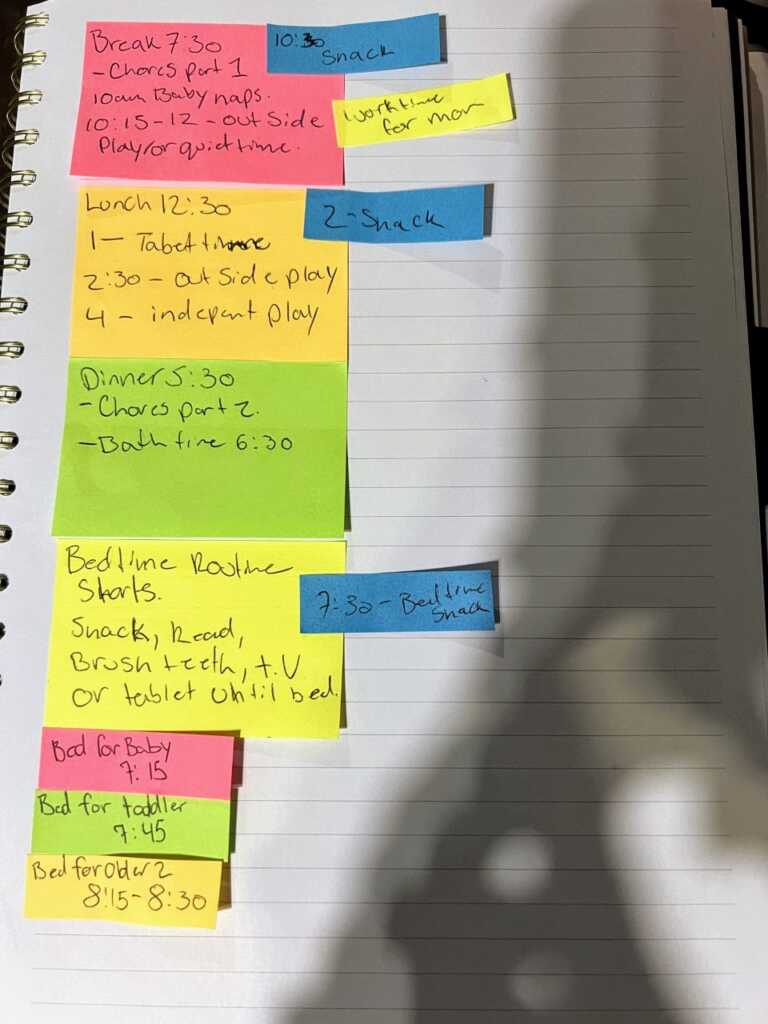 Break 7:30
- Chores part 1
10am Baby naps.
10:15-12 - out Side
Play/or quiet time.
10:30
Snack
Work time
for mom
Lunch 12:30
1 - Tabet time
2:30 - out Side play
4 - indepant play
2-Snack
Dinner 5:30
- Chores part 2.
- Bath time 6:30
Bedtime Routine
Starts.
Snack, Read,
Brush teeth, t.V
or tablet until bed.
7:30 - Bedtime
Snack
Bed for Baby
7:15
Bed for toddler
7:45
Bed for Older 2
8:15-8:30